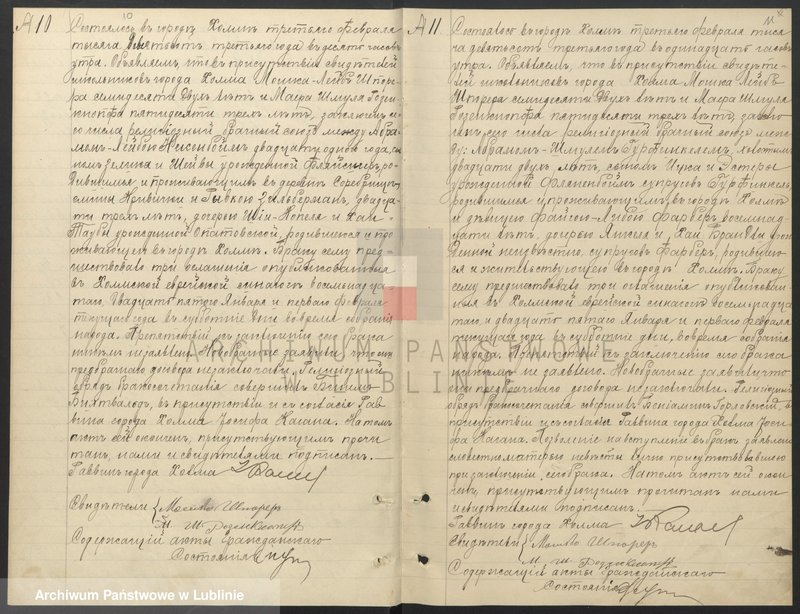 № 10
Состоялось въ городѣ Холмѣ третьяго Февраля
тысяча девятьсотъ третьяго года въ десять часовъ
утра. Объявляемъ, что въ присутствіи свидѣтелей
школьниковъ города Холма Мошка-Лейбъ Шпоре-
ра семидесяти двухъ лѣтъ и Маера Шмуля Розен-
кнопфа пятидесяти трехъ лѣтъ, заключенъ се-
го числа религіозный брачный союзъ между Абра-
момъ-Лейбою двадцати одного года,
сыномъ Зелика и Шейвы урожденной
родившимся и проживающимъ въ деревнѣ Серебрище,
гмины Кривички и Рывкою Зильберманъ, двадца-
ти трехъ лѣтъ, дочерью и Хаи-
Таубы урожденной Опатовской, родившеюся и про-
живающею въ городѣ Холмѣ. Браку сему пред-
шествовало три оглашенія опубликованныя
въ Холмской еврейской синагогѣ восьмнадца-
таго, двадцать пятаго Января и перваго февраля
текущаго года въ субботніе дни во время собранія
народа. Препятствій къ заключенію сего брака
никѣмъ не заявлено. Новобрачные заявили что они
предбрачнаго договора не заключали. Религіозный
обрядъ бракосочетанія совершилъ
Бухвальдъ, въ присутствіи и съ согласія Рав-
вина города Холма Іосифа Кагана. На томъ
актъ сей оконченъ, присутствующимъ прочи-
танъ, нами и свидѣтелями подписанъ.
Раввинъ города Холма
Свидѣтели { Мошко Шпореръ
М. Ш. Розенкнопфъ
Содержащій акты гражданскаго
Состоянія
№ 11
Состоялось въ городѣ Холмѣ третьяго февраля тыся-
ча девятьсотъ третьяго года въ одинадцать часовъ
утра. Объявляемъ, что въ присутствіи свидѣте-
лей школьниковъ города Холма Мошка-Лейбъ
Шпорера семидесяти двухъ лѣтъ и Маера Шмуля
Розенкнопфа пятидесяти трехъ лѣтъ, заклю-
ченъ сего числа религіозный брачный союзъ меж-
ду: Абрамомъ-Шмулемъ Гурфинкелемъ, холостымъ
двадцати двухъ лѣтъ, сыномъ Ицка и Эстеры
урожденной супруговъ Гурфинкель,
родившимся и проживающимъ въ городѣ Холмѣ
и дѣвицею Файгою-Либою Фарберъ восемнад-
цати лѣтъ, дочерью Анкеля и, Хаи Брандли урож-
денной неизвѣстно, супруговъ Фарберъ, родившею-
ся и жительствующею въ городѣ Холмѣ. Браку
сему предшествовало три оглашенія опубликован-
ныя въ Холмской еврейской синагогѣ восемнадца-
таго, двадцать пятаго Января и перваго февраля
текущаго года въ субботніе дни, во время собранія
народа. Препятствій къ заключенію сего брака
никѣмъ не заявлено. Новобрачные заявили что
они предбрачнаго договора не заключали. Религіозный
обрядъ бракосочетанія совершилъ Беніаминъ Горловскій, въ
присутствіи и съ согласія Раввина города Холма Іоси-
фа Кагана. Позволеніе на вступленіе въ бракъ заявлено
словесно матерью невѣсты лично присутствовавшею
при заключеніи сего брака. На томъ актъ сей окон-
ченъ, присутствующимъ прочитанъ нами
и свидѣтелями подписанъ.
Раввинъ города Холма
Свидѣтели { Мошко Шпореръ
М. Ш. Розенкнопфъ
Содержащій акты гражданскаго
Состоянія
ARCHIWUM PAŃSTWOWE
W LUBLINIE
Archiwum Państwowe w Lublinie